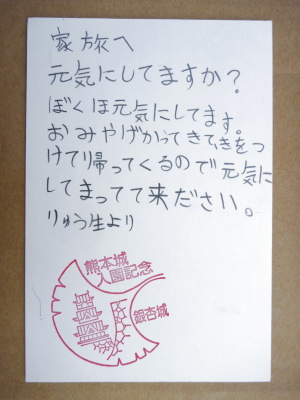 家旅へ
元気にしてますか?
ぼくは元気にしてます。
おみやげかってきてきをつ
けてり帰ってくるので元気に
してまってて来ださい。
りゅう生より
熊本城
入園記念
銀杏城